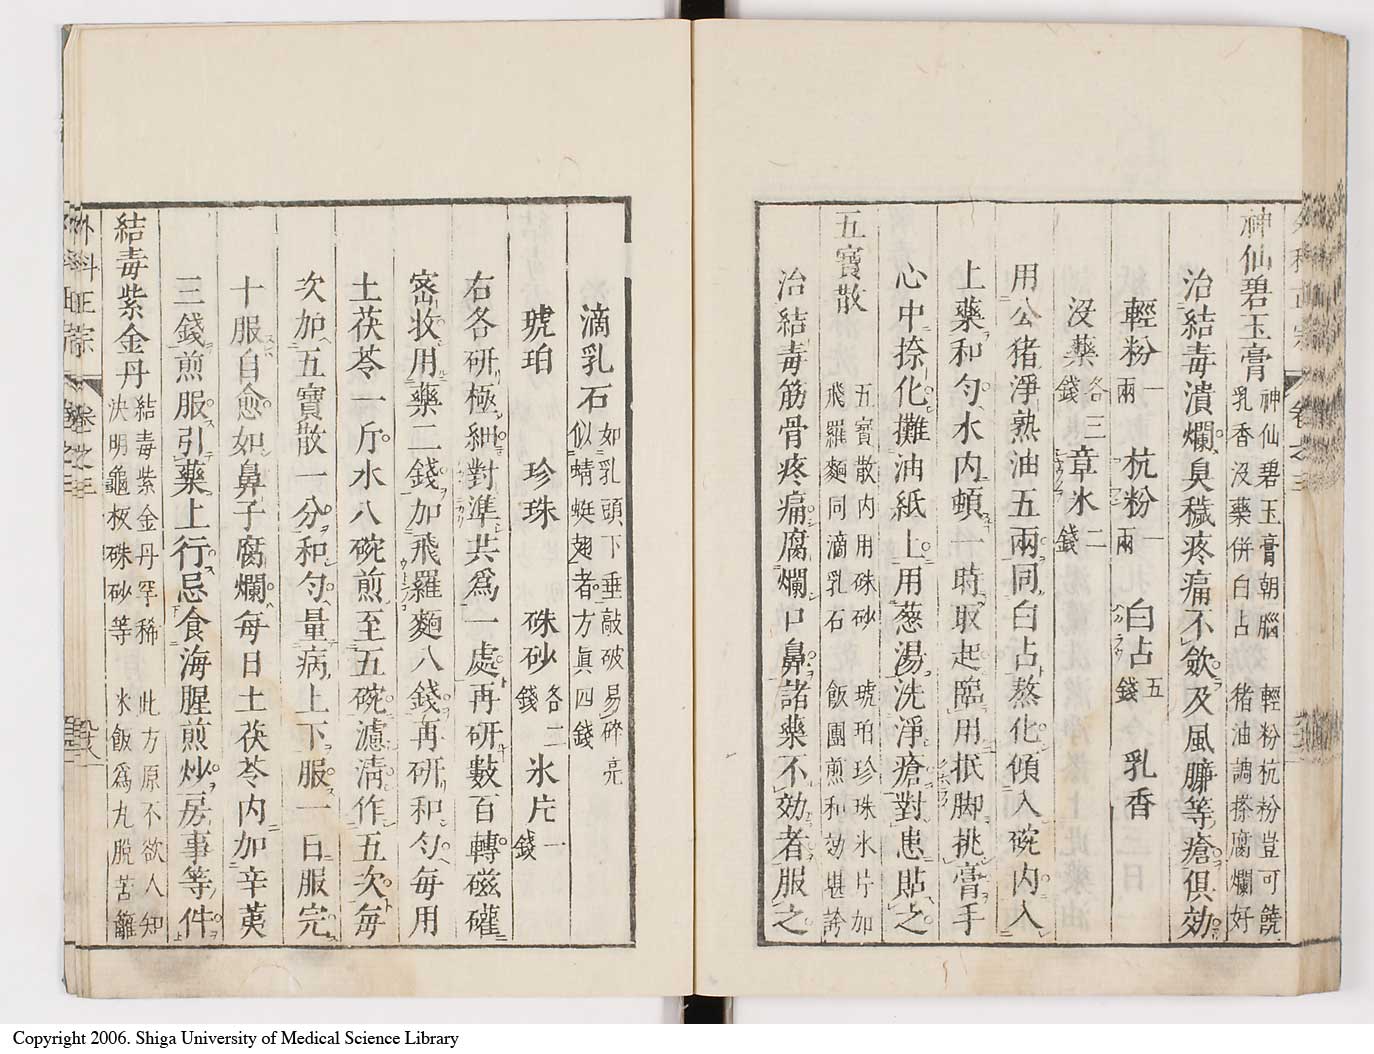 神仙碧玉膏
神仙碧玉膏朝腦　輕粉杭粉豈可饒
乳香沒藥併白占　猪油調搽腐爛好
治結毒潰爛臭穢疼痛不斂及風臁等瘡俱効
輕粉一兩　杭粉一兩　白占五錢　乳香
沒藥各三錢　章氷二錢
用公猪淨熟油五兩同白占熬化傾入碗內入
上藥和勻水內頓一時取起臨用抿脚挑膏手
心中捺化攤油紙上用葱湯洗淨瘡對患貼之
五寶散
五寶散內用硃砂　琥珀珍珠氷片加
飛羅麵同滴乳石　飯團煎和効堪誇
治結毒筋骨疼痛腐爛口鼻諸藥不効者服之
滴乳石
如乳頭下垂敲破易碎亮
似蜻蜓翅者方眞四錢
琥珀　珍珠　硃砂各二錢　氷片一錢
右各研極細對準共爲一處再研數百轉磁礶
密收用藥二錢加飛羅麵八錢再研和勻每用
土茯苓一斤水八碗煎至五碗濾淸作五次每
次加五寶散一分和勻量病上下服一日服完
十服自愈如鼻子腐爛每日土茯苓內加辛荑
三錢煎服引藥上行忌食海腥煎炒房事等件
結毒紫金丹
結毒紫金丹罕稀　此方原不欲人知
決明龜板硃砂等　米飯爲丸脫苦籬
外科正宗　卷之三
Copyright 2006. Shiga University of Medical Science Library